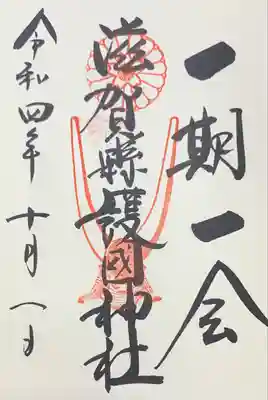 一期一会
滋賀縣護國神社
令和四年十月一日